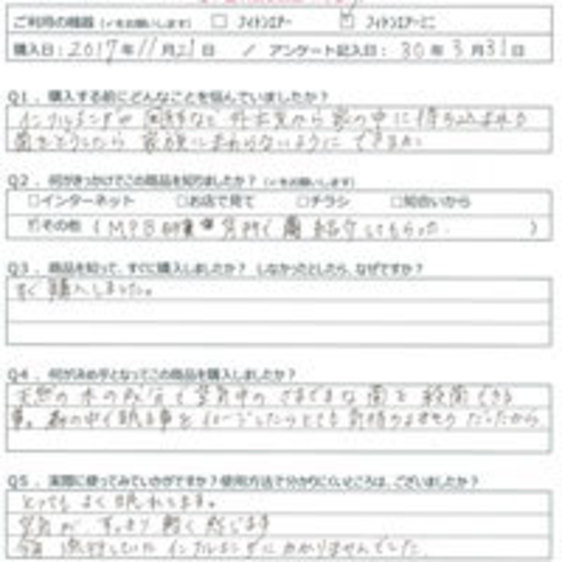 ご利用の機器（✓をお願いします） □ フィトンエアー ☑ フィトンエアーミニ
購入日：2017年11月21日 / アンケート記入日：30年3月31日
Q1．購入する前にどんなことを悩んでいましたか？
インフルエンザや など 外出先から家の中に持ち込まれる
菌をどうしたら 家族にまわらないように できるか
Q2．何がきっかけでこの商品を知りましたか？（✓をお願いします）
□インターネット □お店で見て □チラシ □知合いから
☑その他（ 紹介してもらった。 ）
Q3．商品を知って、すぐに購入しましたか？ しなかったとしたら、なぜですか？
すぐ購入しました。
Q4．何が決め手となってこの商品を購入しましたか？
天然の木の成分で空気中のさまざまな菌を殺菌できる
事。森の中で眠る事をイメージしたらとても気持ちよさそうだったから
Q5．実際に使ってみていかがですか？使用方法で分かりにくいところは、ございましたか？
とってもよく眠れてます。
空気が すっきり 軽く感じます
今年 流行していた インフルエンザにかかりませんでした。